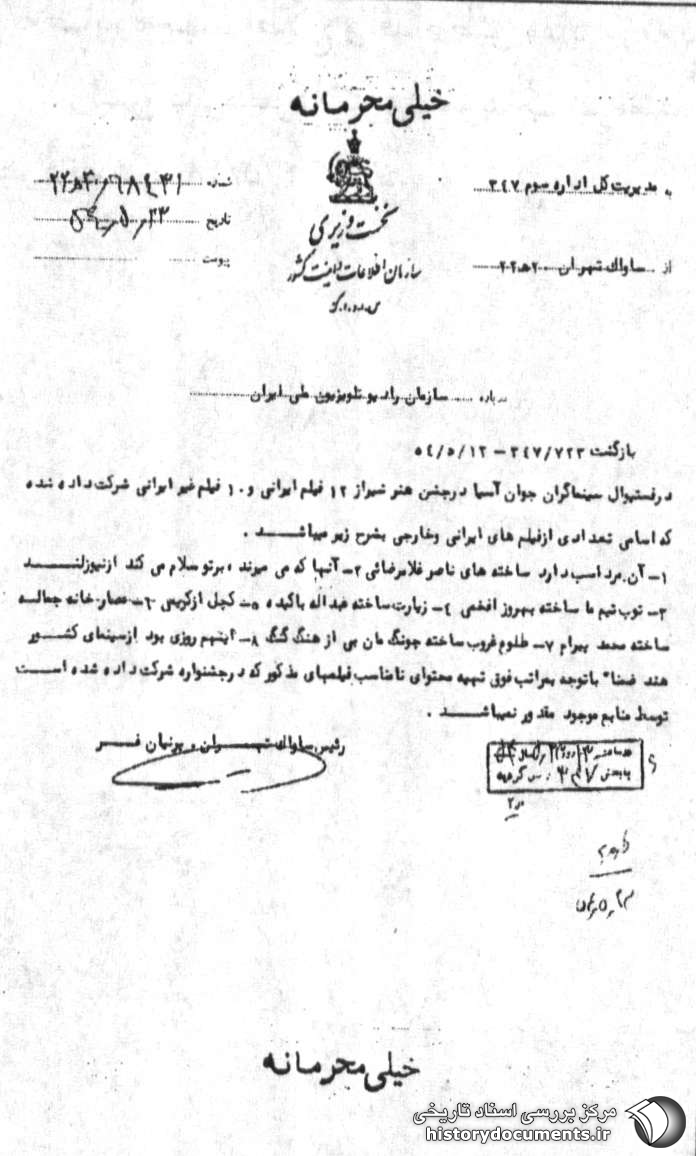 خیلی محرمانه
نخست وزیری
سازمان اطلاعات و امنیت کشور
س.ا.و.ا.ک
به مدیریت کل اداره سوم ۳۴۷
از ساواک تهران ۲۰ه۲۲
شماره
تاریخ ۲۳ر۵ر۵۴
پیوست
درباره سازمان رادیو تلویزیون ملی ایران
بازگشت ۳۴۷/۷۲۳ - ۵۴/۵/۱۲
درفستیوال سینماگران جوان آسیا درجشن هنر شیراز ۱۲ فیلم ایرانی و ۱۰ فیلم غیر ایرانی شرکت داده شده
که اسامی تعدادی ازفیلم های ایرانی وخارجی بشرح زیر میباشد .
۱- آن مرد اسب دارد ساخته های ناصر غلامرضائی ۲- آنها که می میرند ، برتو سلام می کند ازنیوزلند
۳- توپ تیم ما ساخته بهروز افخمی ۴- زیارت ساخته عبداله باکیده ۵- کجل ازکریمی ۶- عصار خانه جماله
ساخته محمد بهرام ۷- طلوع غروب ساخته جونگ مان بی از هنگ کنگ ۸- اینهم روزی بود ازسینمای کشور
هند ضمنا" باتوجه بمراتب فوق تهیه محتوای نامناسب فیلمهای مذکور که درجشنواره شرکت داده شده است
توسط منابع موجود مقدور نمیباشد .
رئیس ساواک تهران ، پرنیان فر
خیلی محرمانه
مرکز بررسی اسناد تاریخی
historydocuments.ir